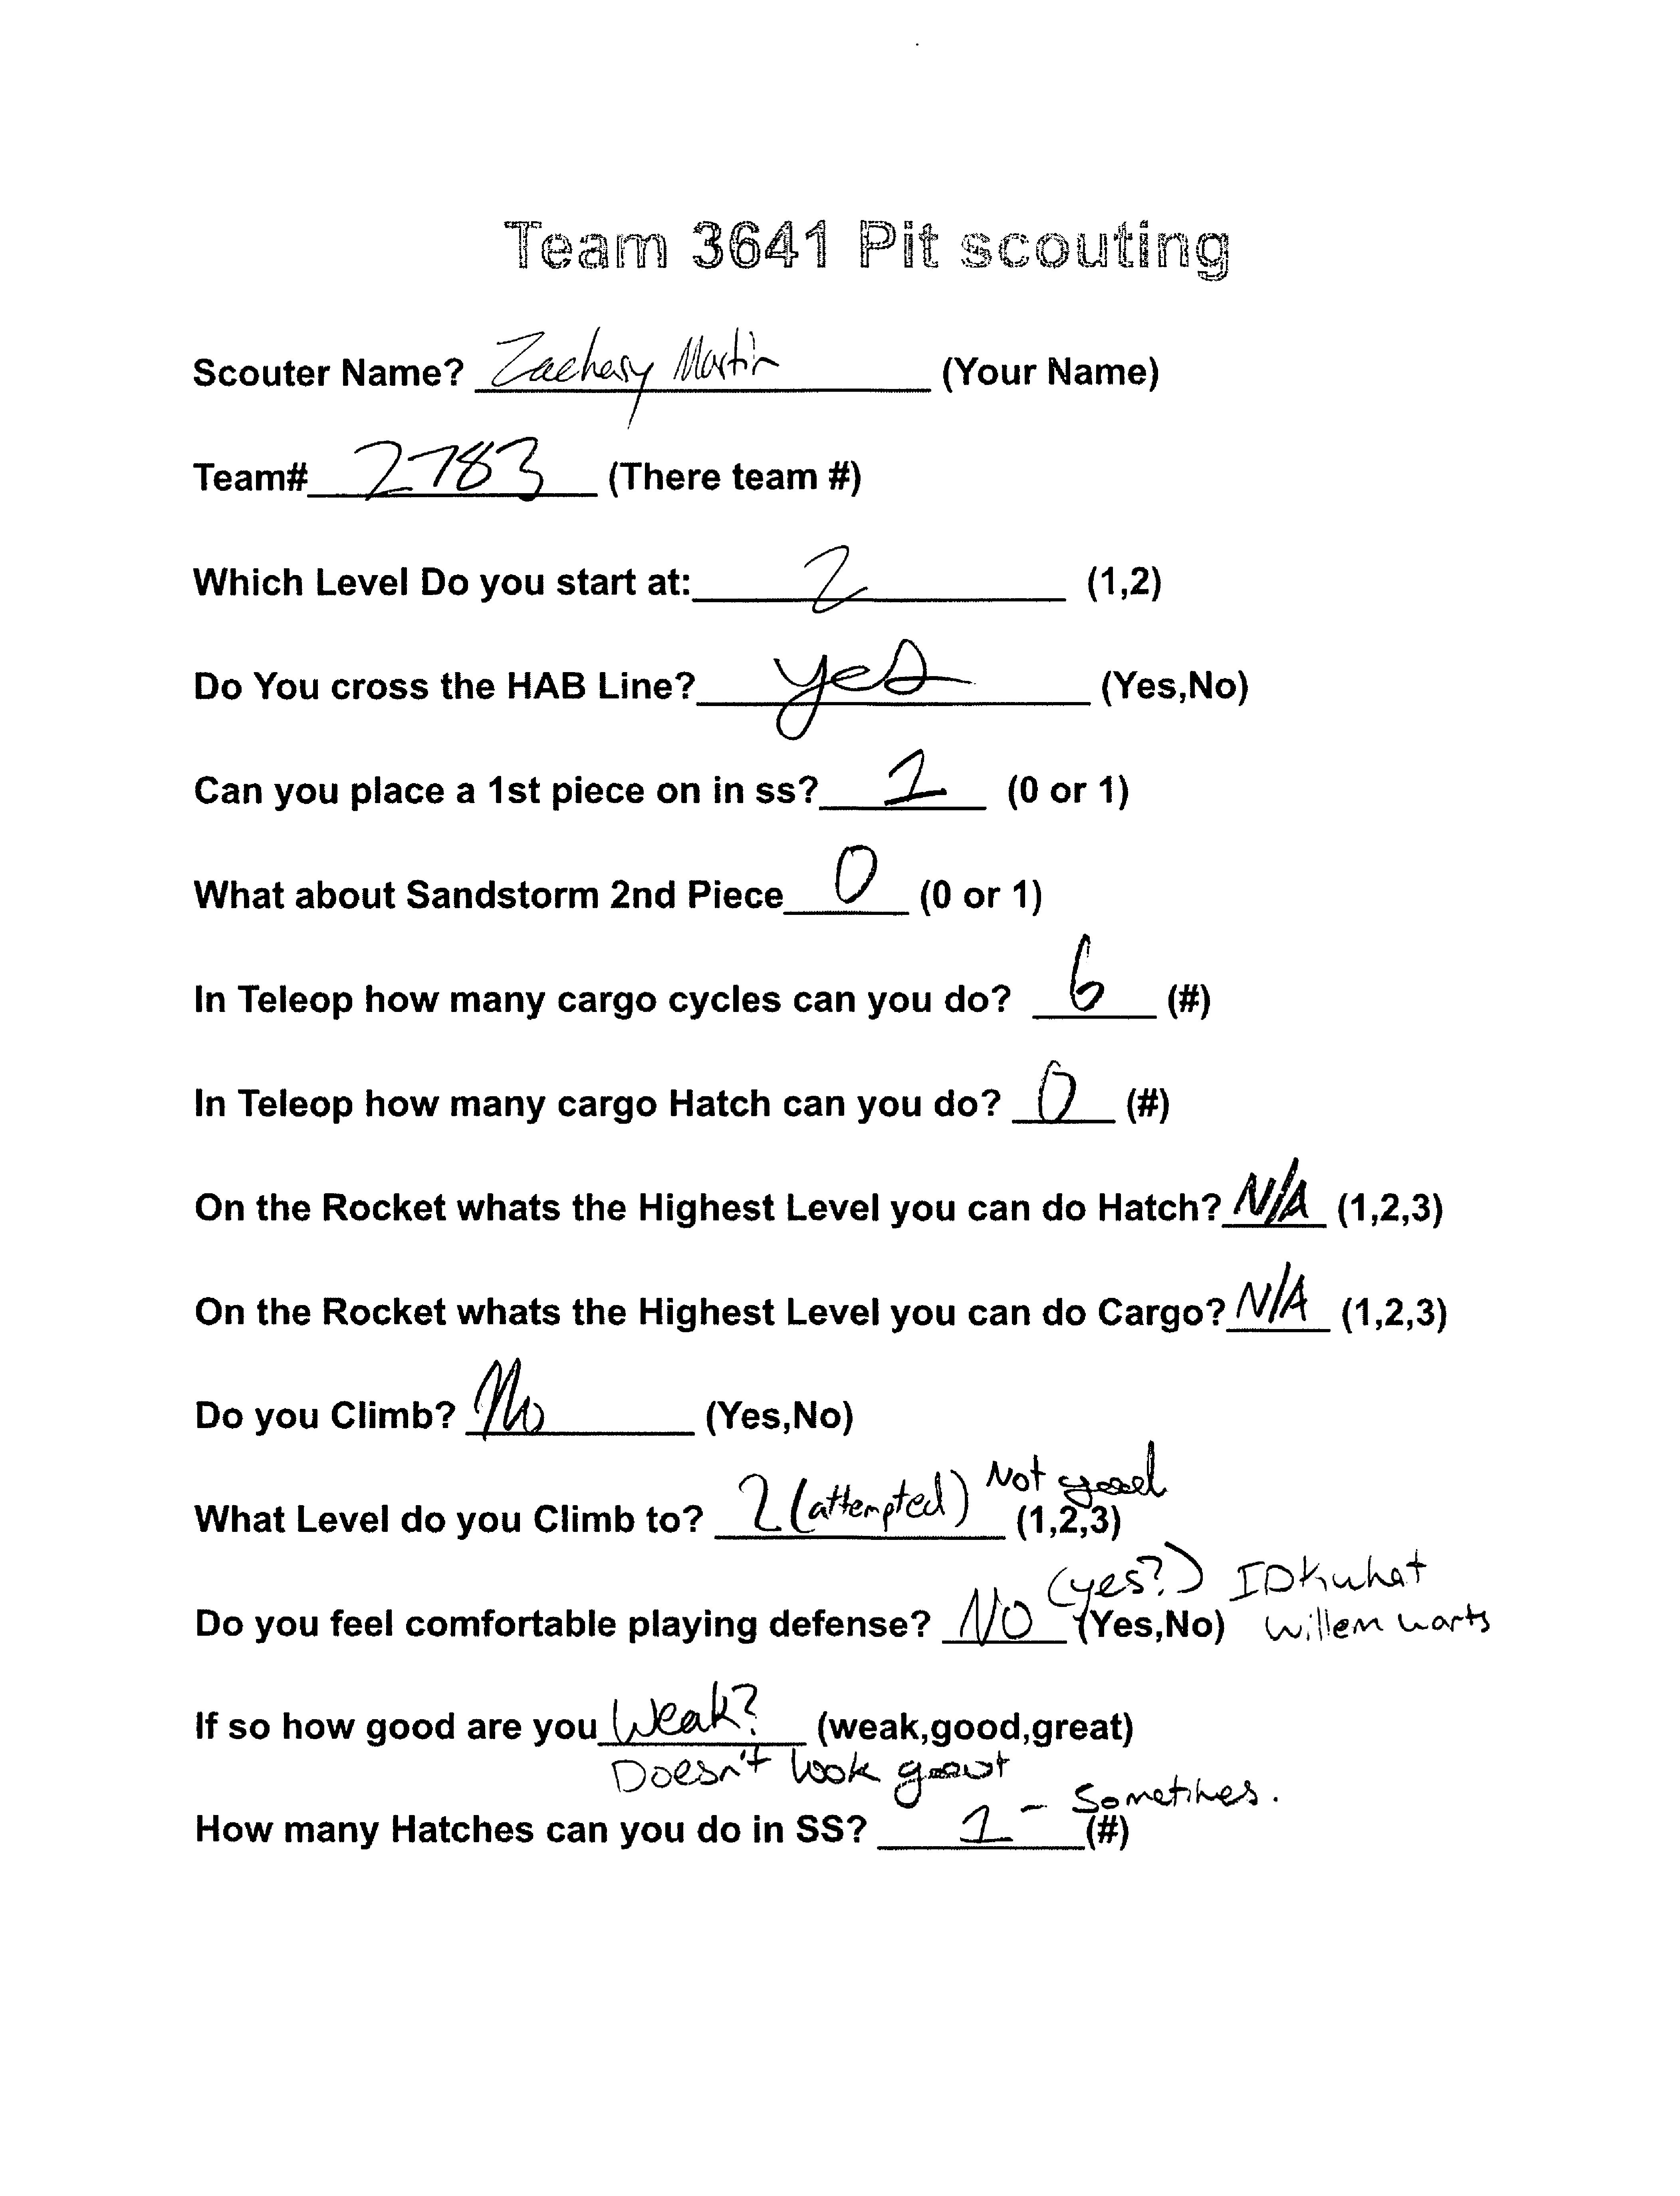 Team 3641 Pit scouting
Scouter Name? Zachary Martin (Your Name)
Team# 2783 (There team #)
Which Level Do you start at: 2 (1,2)
Do You cross the HAB Line? yes (Yes,No)
Can you place a 1st piece on in ss? 1 (0 or 1)
What about Sandstorm 2nd Piece 0 (0 or 1)
In Teleop how many cargo cycles can you do? 6 (#)
In Teleop how many cargo Hatch can you do? 0 (#)
On the Rocket whats the Highest Level you can do Hatch? N/A (1,2,3)
On the Rocket whats the Highest Level you can do Cargo? N/A (1,2,3)
Do you Climb? No (Yes,No)
What Level do you Climb to? 2 (attempted) Not good (1,2,3)
Do you feel comfortable playing defense? NO (yes?) (Yes,No) IDK what
willem wants
If so how good are you Weak? (weak,good,great)
Doesn't look great
How many Hatches can you do in SS? 1 - Sometimes. (#)